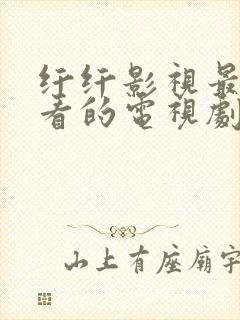 纤纤影視最
看的電視劇
山上有座廟宇